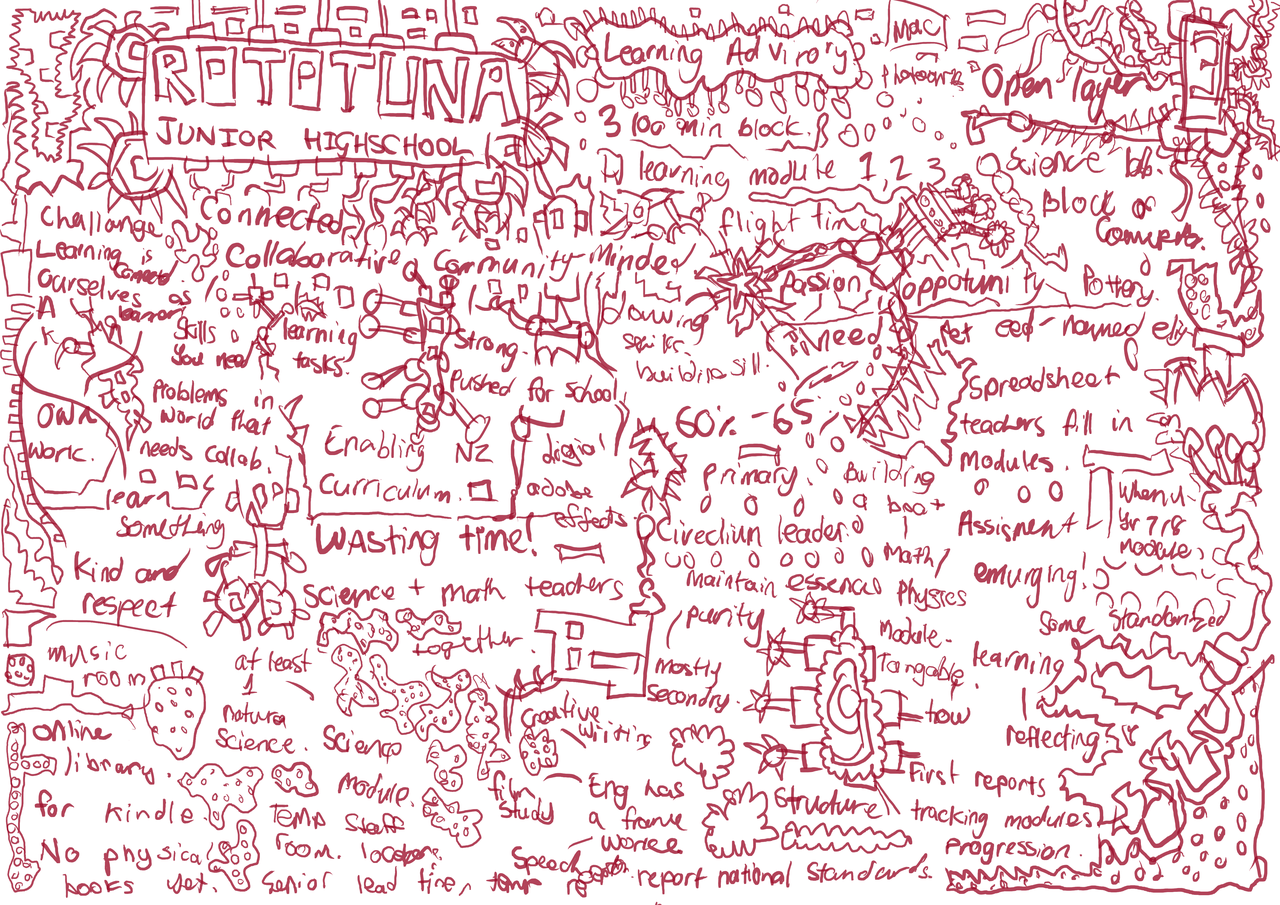 ROTOTUNA
JUNIOR HIGHSCHOOL
Challange
Learning is
connected
ourselves as
learner
A
K
own
work.
Connected
Collaborative
Community-Minded
Skills
You need
learning
tasks.
Strong.
Pushed for school
Problems in
world that
needs collab.
learn
something
Kind and
respect
Enabling NZ
Curriculum.
digial
adobe
effects
Wasting time!
Science + math teachers
together.
music
room
online
library.
for kindle.
No physical
books yet.
at least
1
natura
Science.
Science
Module.
Temp staff
room.
Senior lead
Creative
Writing
film
study
Eng has
a frame
Speech
Learning Advirory
3 100 min block.
learning module 1, 2, 3
flight time
Passion
need
building sill.
60% - 65
primary.
Building
a boat
Math/
Physics
Module.
Tangable.
leader
maintain essence
purity
mostly
secondry.
how
Structure
report national standards.
Mac
Open layer
Science lab.
Block of
oppotunity
Pottery.
Spreadsheet
teachers fill in
Modules.
Assisment
when u
Yr 7 r 8
module
emurging!
Some Standardized
learning
I am
reflecting
First reports
tracking modules
Progression.